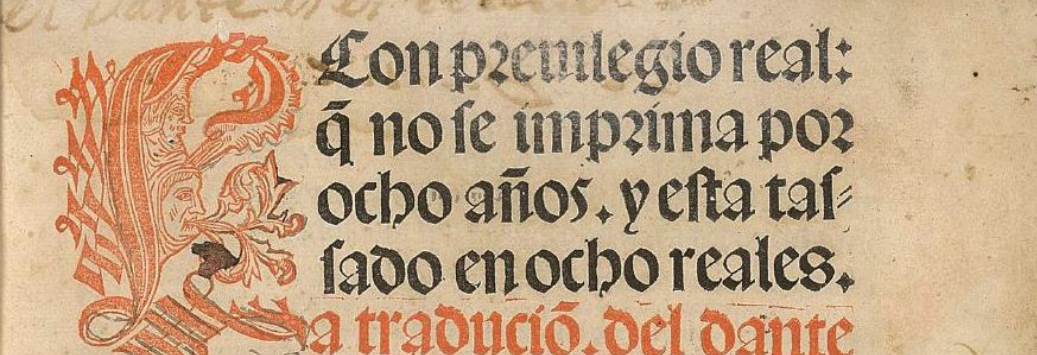 Con preuilegio real:
q̃ no se imprima por
ocho años. y esta tas-
sado en ocho reales.
La traduciõ. del dante